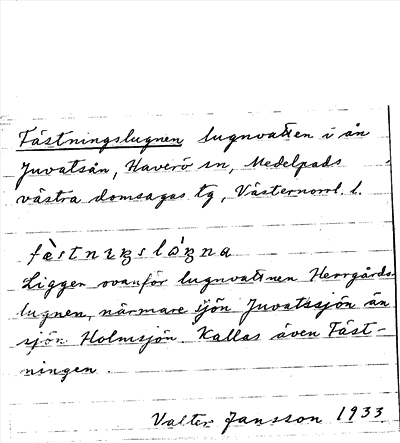 Fästningslugnen lugnvatten i ån
Juvatsån, Haverö sn, Medelpads
västra domsagas tg, Västernorrl. l.
Ligger ovanför lugnvattnen Herrgårds-
lugnen, närmare sjön Juvatssjön än
sjön Holmsjön. Kallas även Fäst-
ningen.
Valter Jansson 1933.